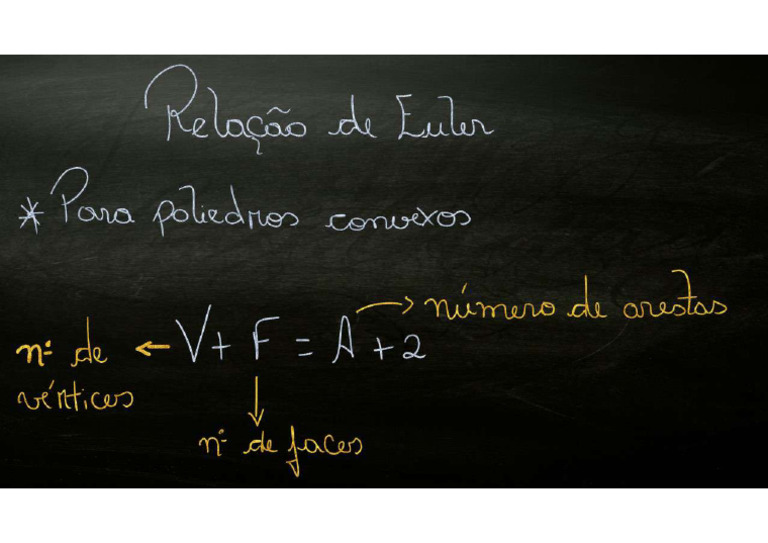 Relação de Euler
* Para poliedros convexos
V + F = A + 2 → número de arestas
nº de ←
vértices
nº de faces